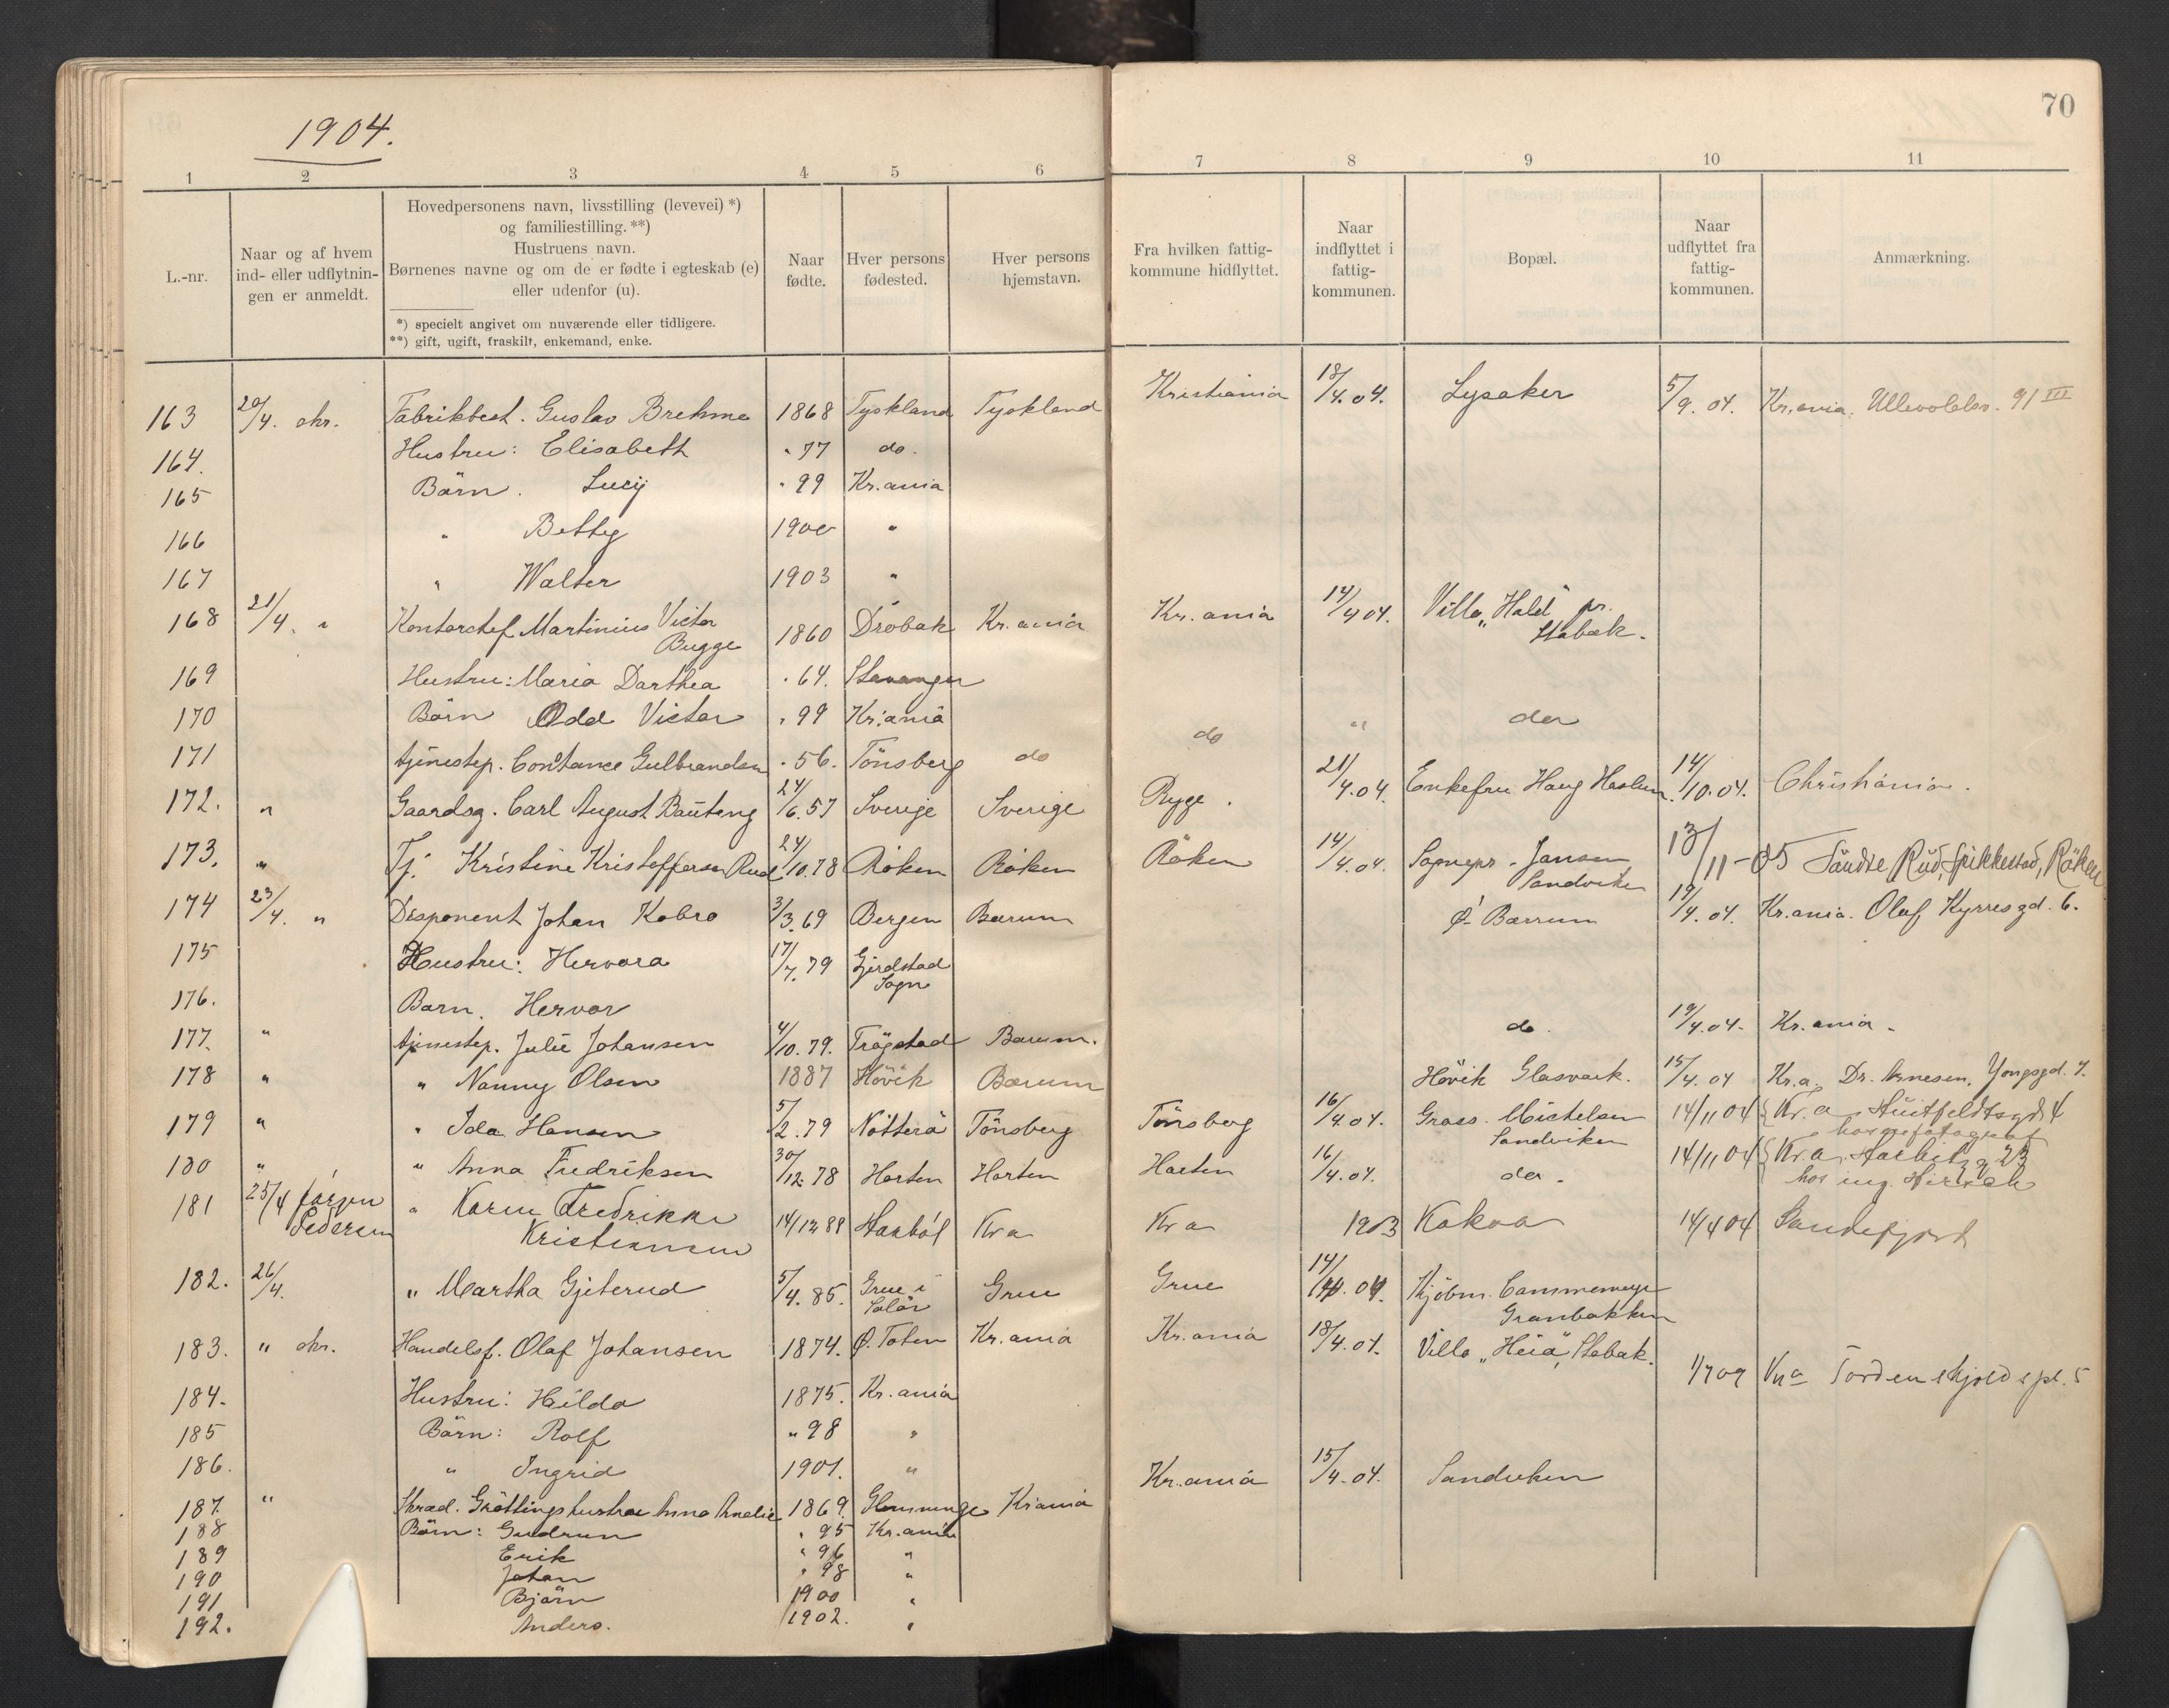 70
1904.
1 2 3 4 5 6 7 8 9 10 11
L.-nr.
Naar og af hvem
ind- eller udflytnin-
gen er anmeldt.
Hovedpersonens navn, livsstilling (levevei) *)
og familiestilling. **)
Hustruens navn.
Børnenes navne og om de er fødte i egteskab (e)
eller udenfor (u).
*) specielt angivet om nuværende eller tidligere.
**) gift, ugift, fraskilt, enkemand, enke.
Naar
fødte.
Hver persons
fødested.
Hver persons
hjemstavn.
Fra hvilken fattig-
kommune hidflyttet.
Naar
indflyttet i
fattig-
kommunen.
Bopæl.
Naar
udflyttet fra
fattig-
kommunen.
Anmærkning.
163 20/4. skr. Fabrikbest. Gustav Brehme 1868 Tyskland Tyskland Kristiania 18/4.04. Lysaker 5/9.04. Kr.ania. 91 III
164. Hustru: Elisabeth " 77 do.
165 Börn. Lucy " 99 Kr.ania
166 " Betty 1900 "
167 " Walter 1903 "
168 21/4. " Kontorchef Martinius Victor Kr.ania 14/4 04. Villa "Hald" pr.
Bugge 1860 Dröbak Kr.ania Stabæk.
169 Hustru: Maria Darthea " 64. Stavanger
170 Börn Odd Victor " 99 Kr.ania
171 tjenestep. Constance Gulbrandsen " 56. Tönsberg do do " do
172. " Gaardsg. Carl August Bauteng 24/6.57 Sverige Sverige Rygge. 21/4.04. Enkefru Haug Haslum. 14/10.04. Christiania.
173. " Tj. Kristine Kristoffersen Rud 24/10.78 Röken Röken Röken 14/4.04. Sognepr. Jansen 13/11-05 Söndre Rud, Spikkestad, Röken
Sandviken
174 23/4. " Disponent Johan Kobro 3/3.69 Bergen Bærum Ø. Bærum 19/4.04. Kr.ania. Olaf Kyrresgd. 6.
175 Hustru: Hervora 17/7.79
Sogn
176. Barn. Hervor
177. " tjenestep. Julie Johansen 4/10.79. Trögstad Bærum. do. 19/4.04. Kr.ania.
178 " " Nanny Olsen 1887 Hövik Bærum Hövik Glasværk. 15/4.04 Kr.a. Dr. Arnesen, Yongsgd. 7.
179 " " Ida Hansen 5/2.79 Nötterö Tönsberg Tönsberg 16/4.04. Gross. Michelsen 14/11 04 Kr.a Huitfeldtsgd 4
Sandviken
180 " " Anna Fredriksen 30/12.78 Horten Horten Horten 16/4.04. do. 14/11 04 Kr.a.
hos ing.
181 25/4 Jörgen " Karen Fredrikke 14/12 88 Kra Kra 1903 Kokoa 14/4 04 Sandefjord
Pedersen Kristiansen
182. 26/4. " Martha Gjeterud 5/4.85. Grue i Grue Grue 14/4.04. Kjöbm. Cammermeyer
Solör Granbakken
183. " skr. Handelsf. Olaf Johansen 1874. Ø. Toten Kr.ania Kr.ania 18/4.04. Villa "Heia", Stabæk. 1/7 09 Kra Tordenskjolds pl. 5
184. Hustru: Hilda 1875. Kr.ania
185 Börn: Rolf " 98 "
186. " Ingrid 1901. "
187. " Skræd. Gröttings hustru Anna Amalie 1869. Glemminge Kr.ania Kr.ania 15/4.04. Sandviken
188 Börn: Gudrun " 95 Kr.ania
189 Erik " 96 "
190 Johan " 98 "
191 Björn 1900 "
192. Anders. 1902. "